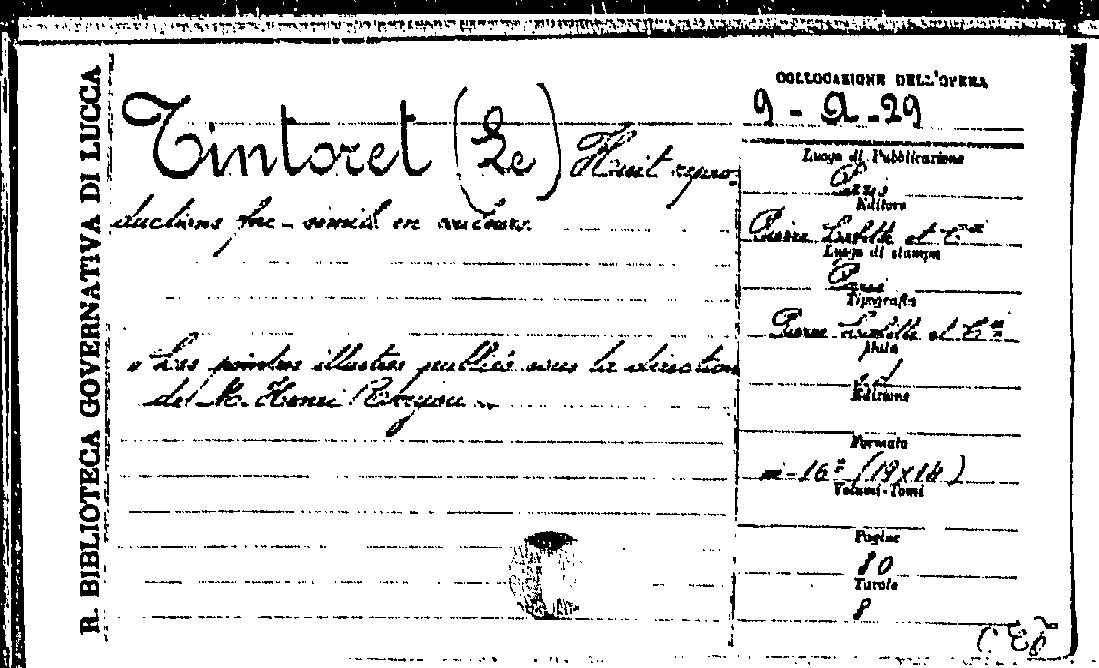 R. BIBLIOTECA GOVERNATIVA DI LUCCA
Tintoret (Le) Huit repro-
ductions fac-simile en couleurs.
"Les peintres illustres publiés sous la direction
de M. Henri Roujon"
COLLOCAZIONE DELL'OPERA
9 - Q - 29
Luogo di Pubblicazione
Paris
Editore
Pierre Lafitte et C.ie
Luogo di stampa
Paris
Tipografia
Pierre Lafitte et C.ie
Data
Edizione
Formato
in-16° (19x14)
Volumi-Tomi
Pagine
80
Tavole
8